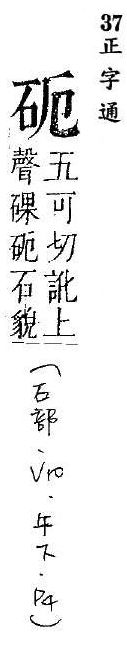 37正字通
砈
五可切訛上
聲磥砈石貌
(石部.V10.午下.P4)